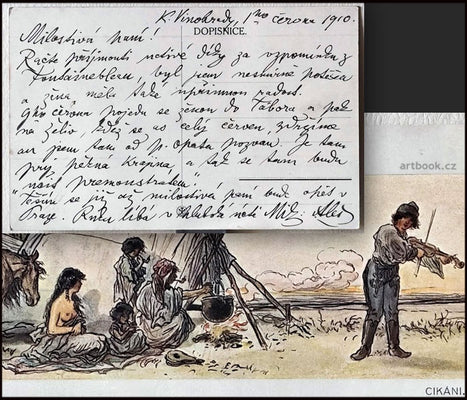 K. Vinohrady, 1ho června 1910.
DOPISNICE.
Milostivá paní!
Račte přijmouti uctivé díky za vzpomínku z
Fontainebleau, byl jsem nesmírně potěšen
a žena měla také upřímnou radost.
června pojedu se ženou do Tábora a pak
na Želiv, kdež se as celý červen zdržíme
an jsem tam od p. opata pozván. Je tam
prý pěkná krajina, a tak se tam budu
"mnis premonstrátem"
Těším se již až milostivá paní bude opět v
Praze. Ruku líbá v hluboké úctě Mik. Aleš
artbook.cz
CIKÁNI.